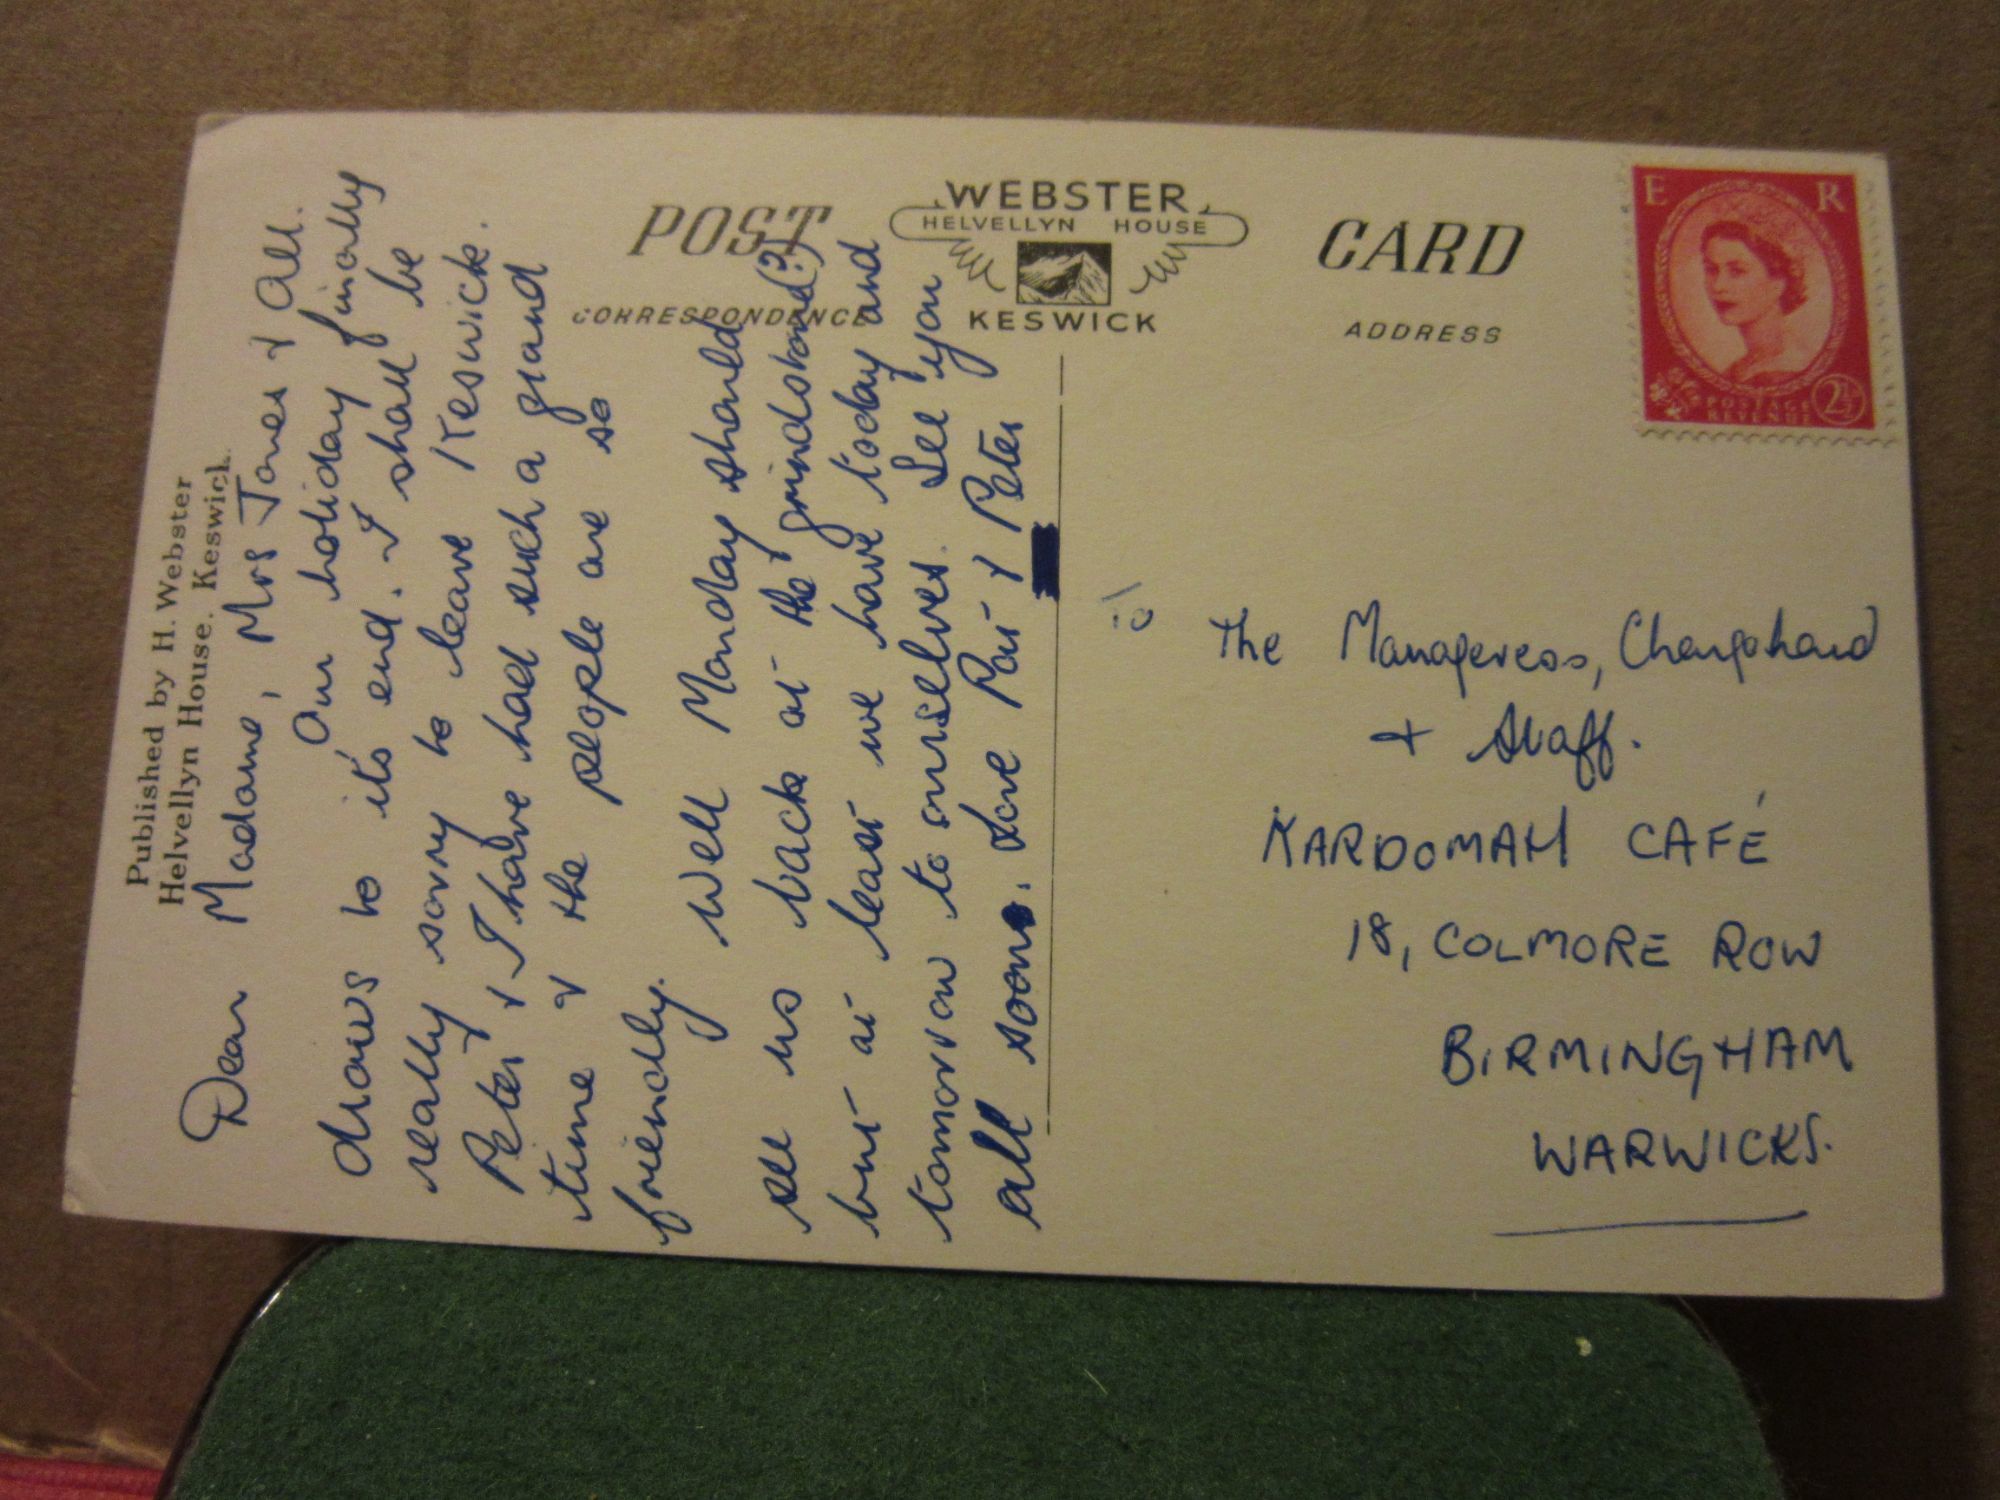 Published by H. Webster
Helvellyn House. Keswick.
POST CARD
WEBSTER
HELVELLYN HOUSE
KESWICK
CORRESPONDENCE
ADDRESS
E R
POSTAGE
REVENUE
2½
Dear Madame, Mrs Jones & all.
Our holiday finally
draws to it's end. & I shall be
really sorry to leave Keswick.
Peter & I have had such a grand
time & the people are so
friendly.
Well Monday should
see us back at the grindstone(?)
but at least we have today and
tomorrow to ourselves. See you
all soon. Love Pat & Peter
To
The Manageress, Chargehand
& Staff.
KARDOMAH CAFÉ
18, COLMORE ROW
BIRMINGHAM
WARWICKS.